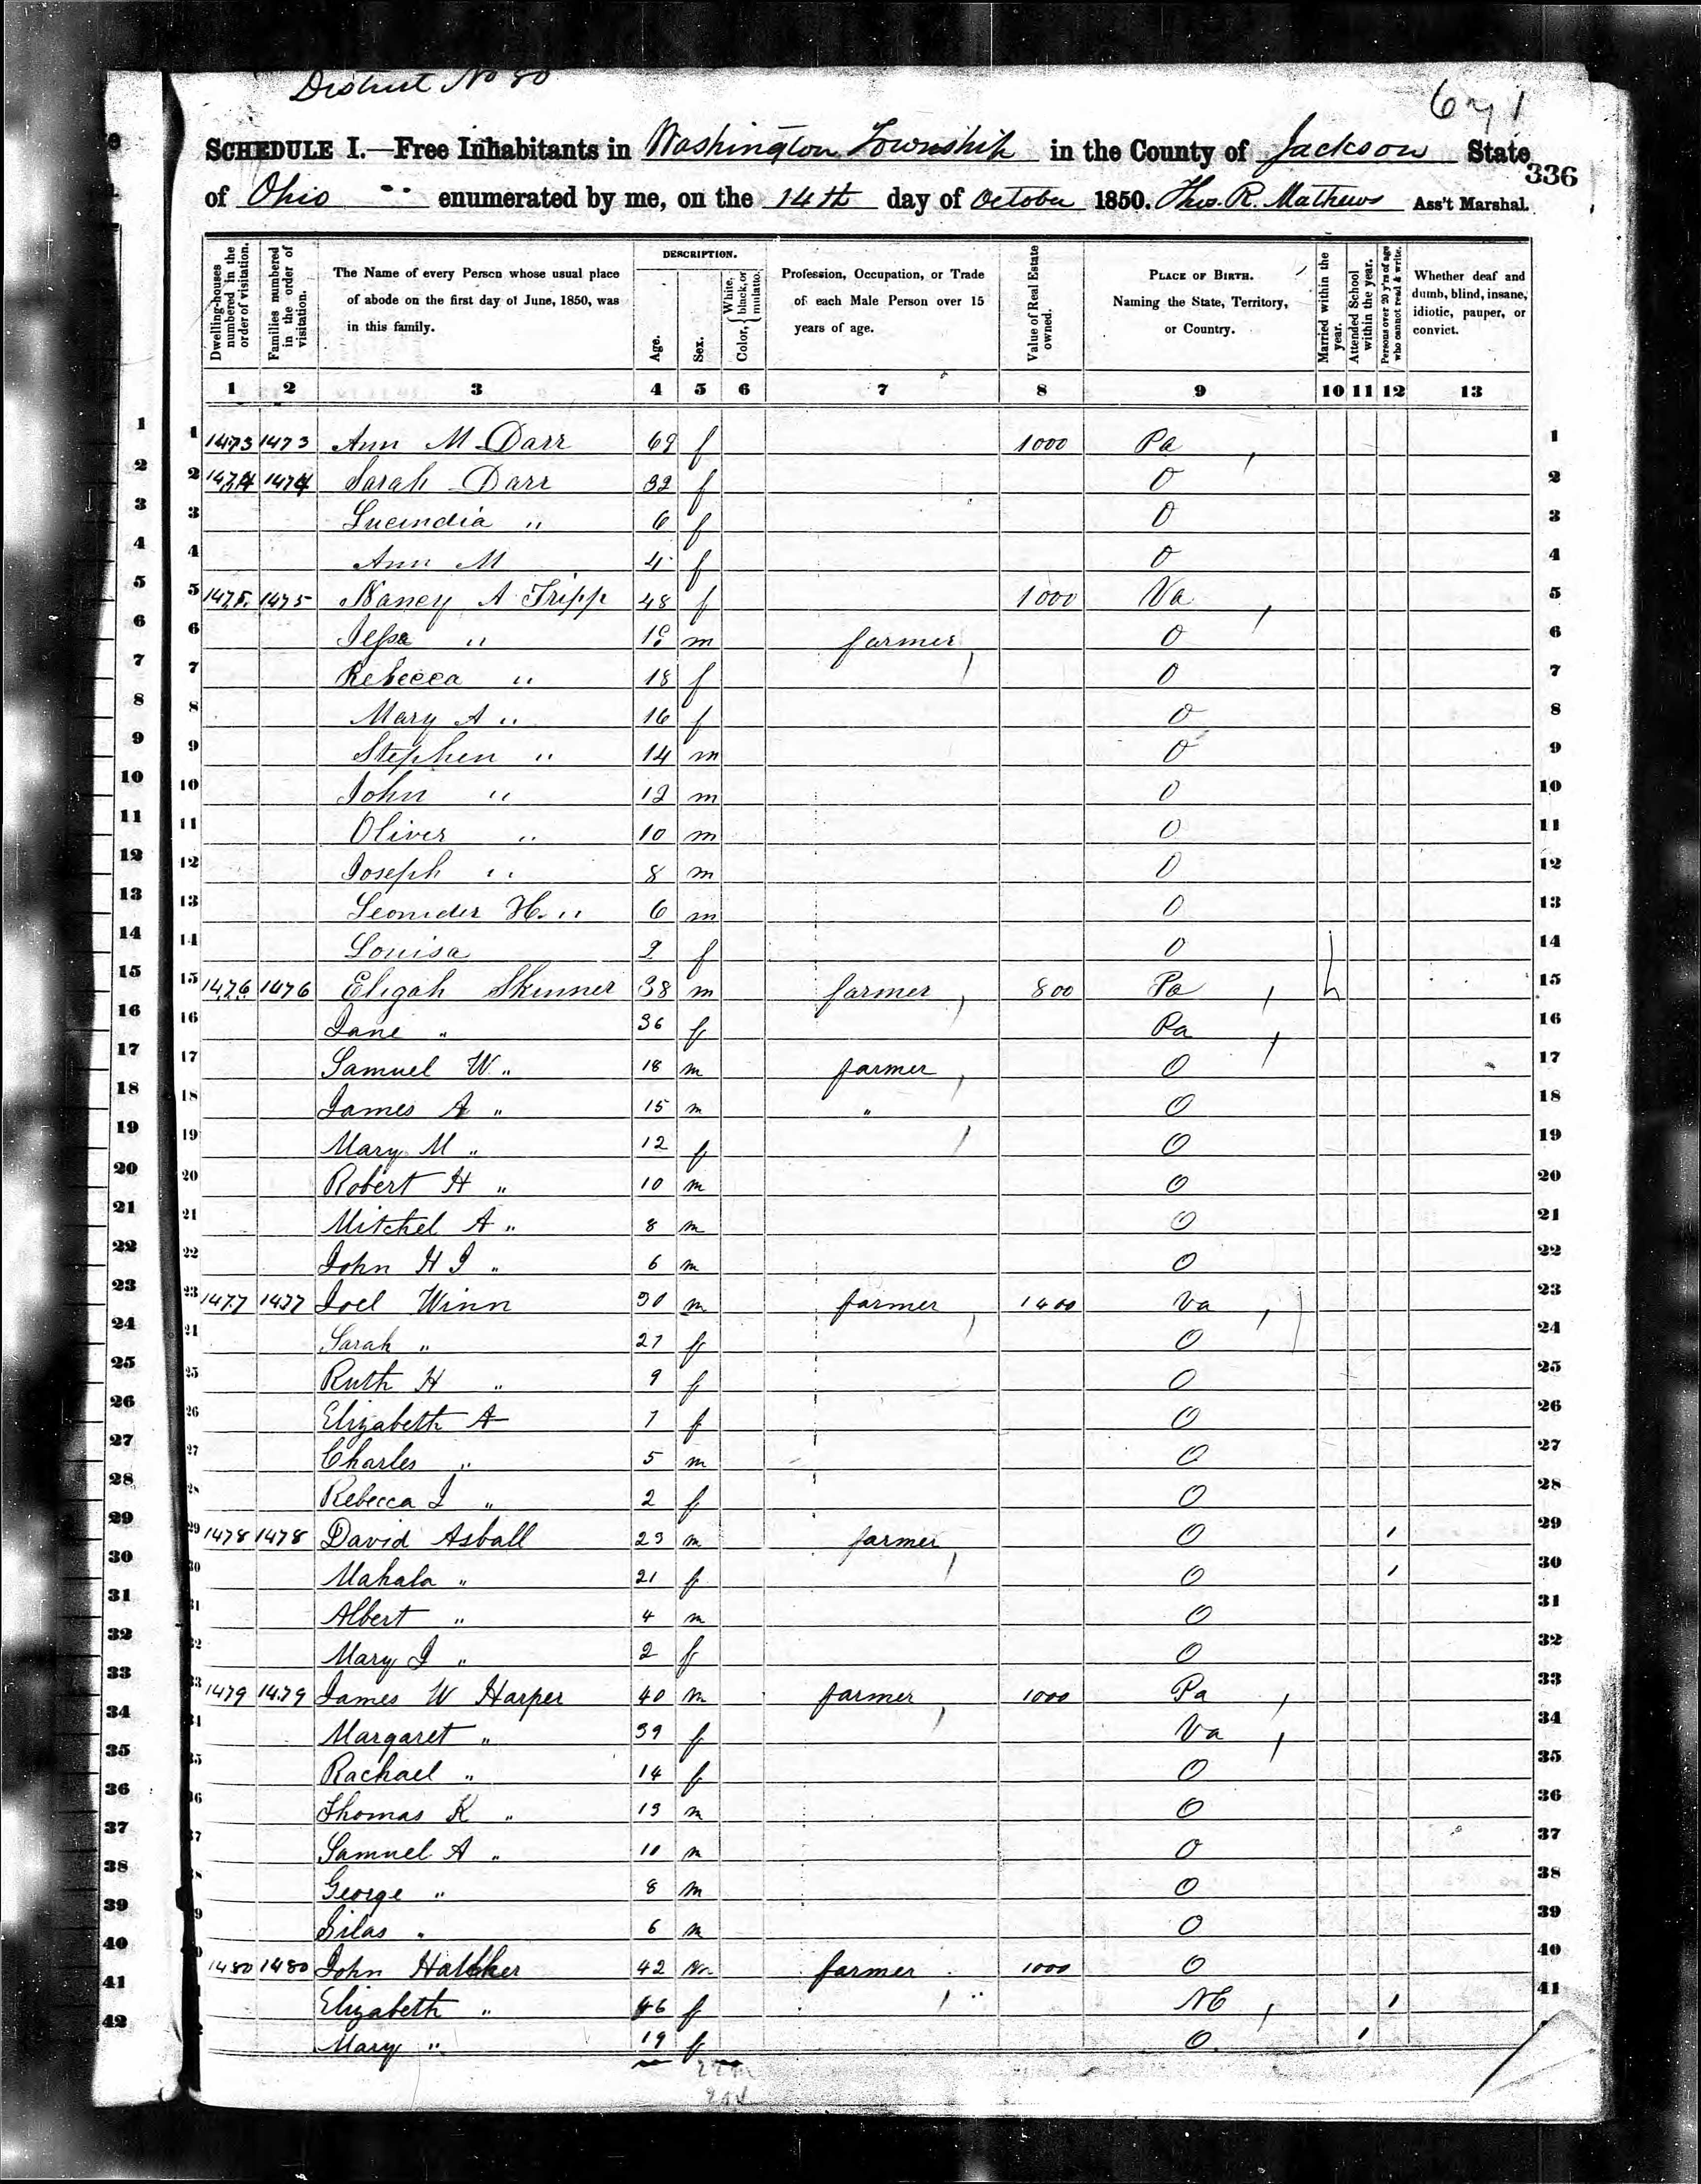 District No 80
671
SCHEDULE I.—Free Inhabitants in Washington Township in the County of Jackson State
336
of Ohio enumerated by me, on the 14th day of October 1850. Thos. R. Mathews Ass't Marshal.
Dwelling-houses numbered in the order of visitation.
Families numbered in the order of visitation.
The Name of every Person whose usual place of abode on the first day of June, 1850, was in this family.
DESCRIPTION.
Age.
Sex.
Color, White, black, or mulatto.
Profession, Occupation, or Trade of each Male Person over 15 years of age.
Value of Real Estate owned.
PLACE OF BIRTH. Naming the State, Territory, or Country.
Married within the year.
Attended School within the year.
Persons over 20 y'rs of age who cannot read & write.
Whether deaf and dumb, blind, insane, idiotic, pauper, or convict.
1 2 3 4 5 6 7 8 9 10 11 12 13
1 1473 1473 Ann M Darr 69 f 1000 Pa 1
2 1474 1474 Sarah Darr 32 f O 2
3 Lucindia " 6 f O 3
4 Ann M 4 f O 4
5 1475 1475 Nancy A Tripp 48 f 1000 Va 5
6 Jessa " m farmer O 6
7 Rebecca " 18 f O 7
8 Mary A " 16 f O 8
9 Stephen " 14 m O 9
10 John " 12 m O 10
11 Oliver " 10 m O 11
12 Joseph " 8 m O 12
13 Leonider H. " 6 m O 13
14 Louisa 2 f O 14
15 1476 1476 Eligah Skinner 38 m farmer 800 Pa 15
16 Jane " 36 f Pa 16
17 Samuel W " 18 m farmer O 17
18 James A " 15 m " O 18
19 Mary M " 12 f O 19
20 Robert H " 10 m O 20
21 Mitchel A " 8 m O 21
22 John H J " 6 m O 22
23 1477 1477 Joel Winn 30 m farmer 1400 Va 23
24 Sarah " 27 f O 24
25 Ruth H " 9 f O 25
26 Elizabeth A 7 f O 26
27 Charles " 5 m O 27
28 Rebecca J " 2 f O 28
29 1478 1478 David Asball 23 m farmer O 1 29
30 Mahala " 21 f O 1 30
31 Albert " 4 m O 31
32 Mary J " 2 f O 32
33 1479 1479 James W Harper 40 m farmer 1000 Pa 33
34 Margaret " 39 f Va 34
35 Rachael " 14 f O 35
36 Thomas K " 13 m O 36
37 Samuel A " 10 m O 37
38 George " 8 m O 38
39 Silas " 6 m O 39
40 1480 1480 John 42 m farmer 1000 O 40
41 Elizabeth " 46 f NC 1 41
42 Mary " 19 f O 1